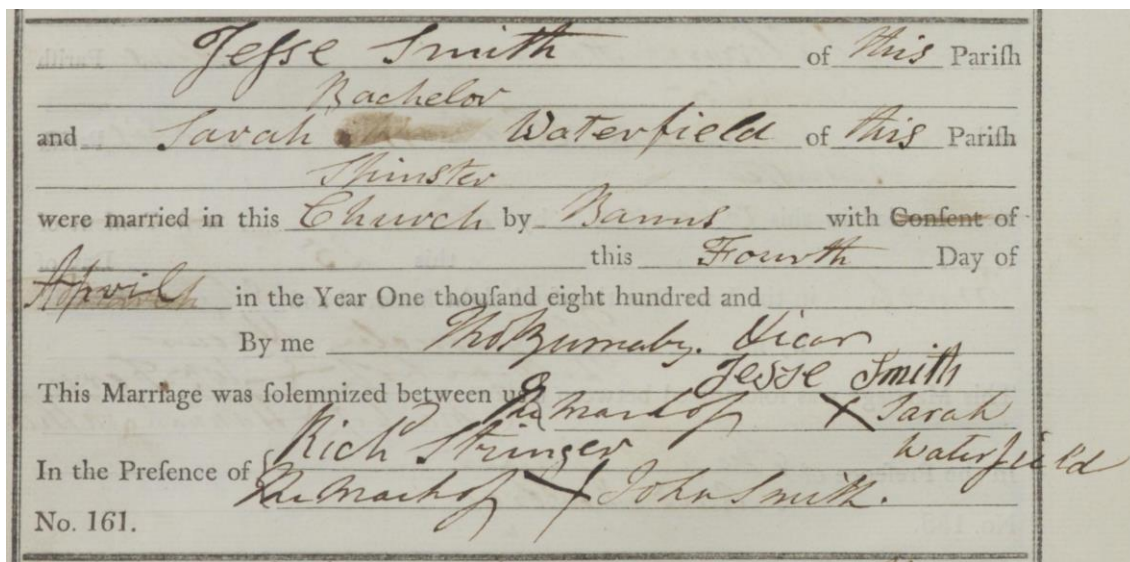 Jesse Smith of this Pariſh
Bachelor
and Sarah Waterfield of this Pariſh
Spinster
were married in this Church by Banns with Conſent of
this Fourth Day of
April in the Year One thouſand eight hundred and
By me Thos Burnaby. Vicar
This Marriage was ſolemnized between us Jesse Smith
The Mark of X Sarah
Waterfield
In the Preſence of Richd Stringer
The Mark of X John Smith.
No. 161.